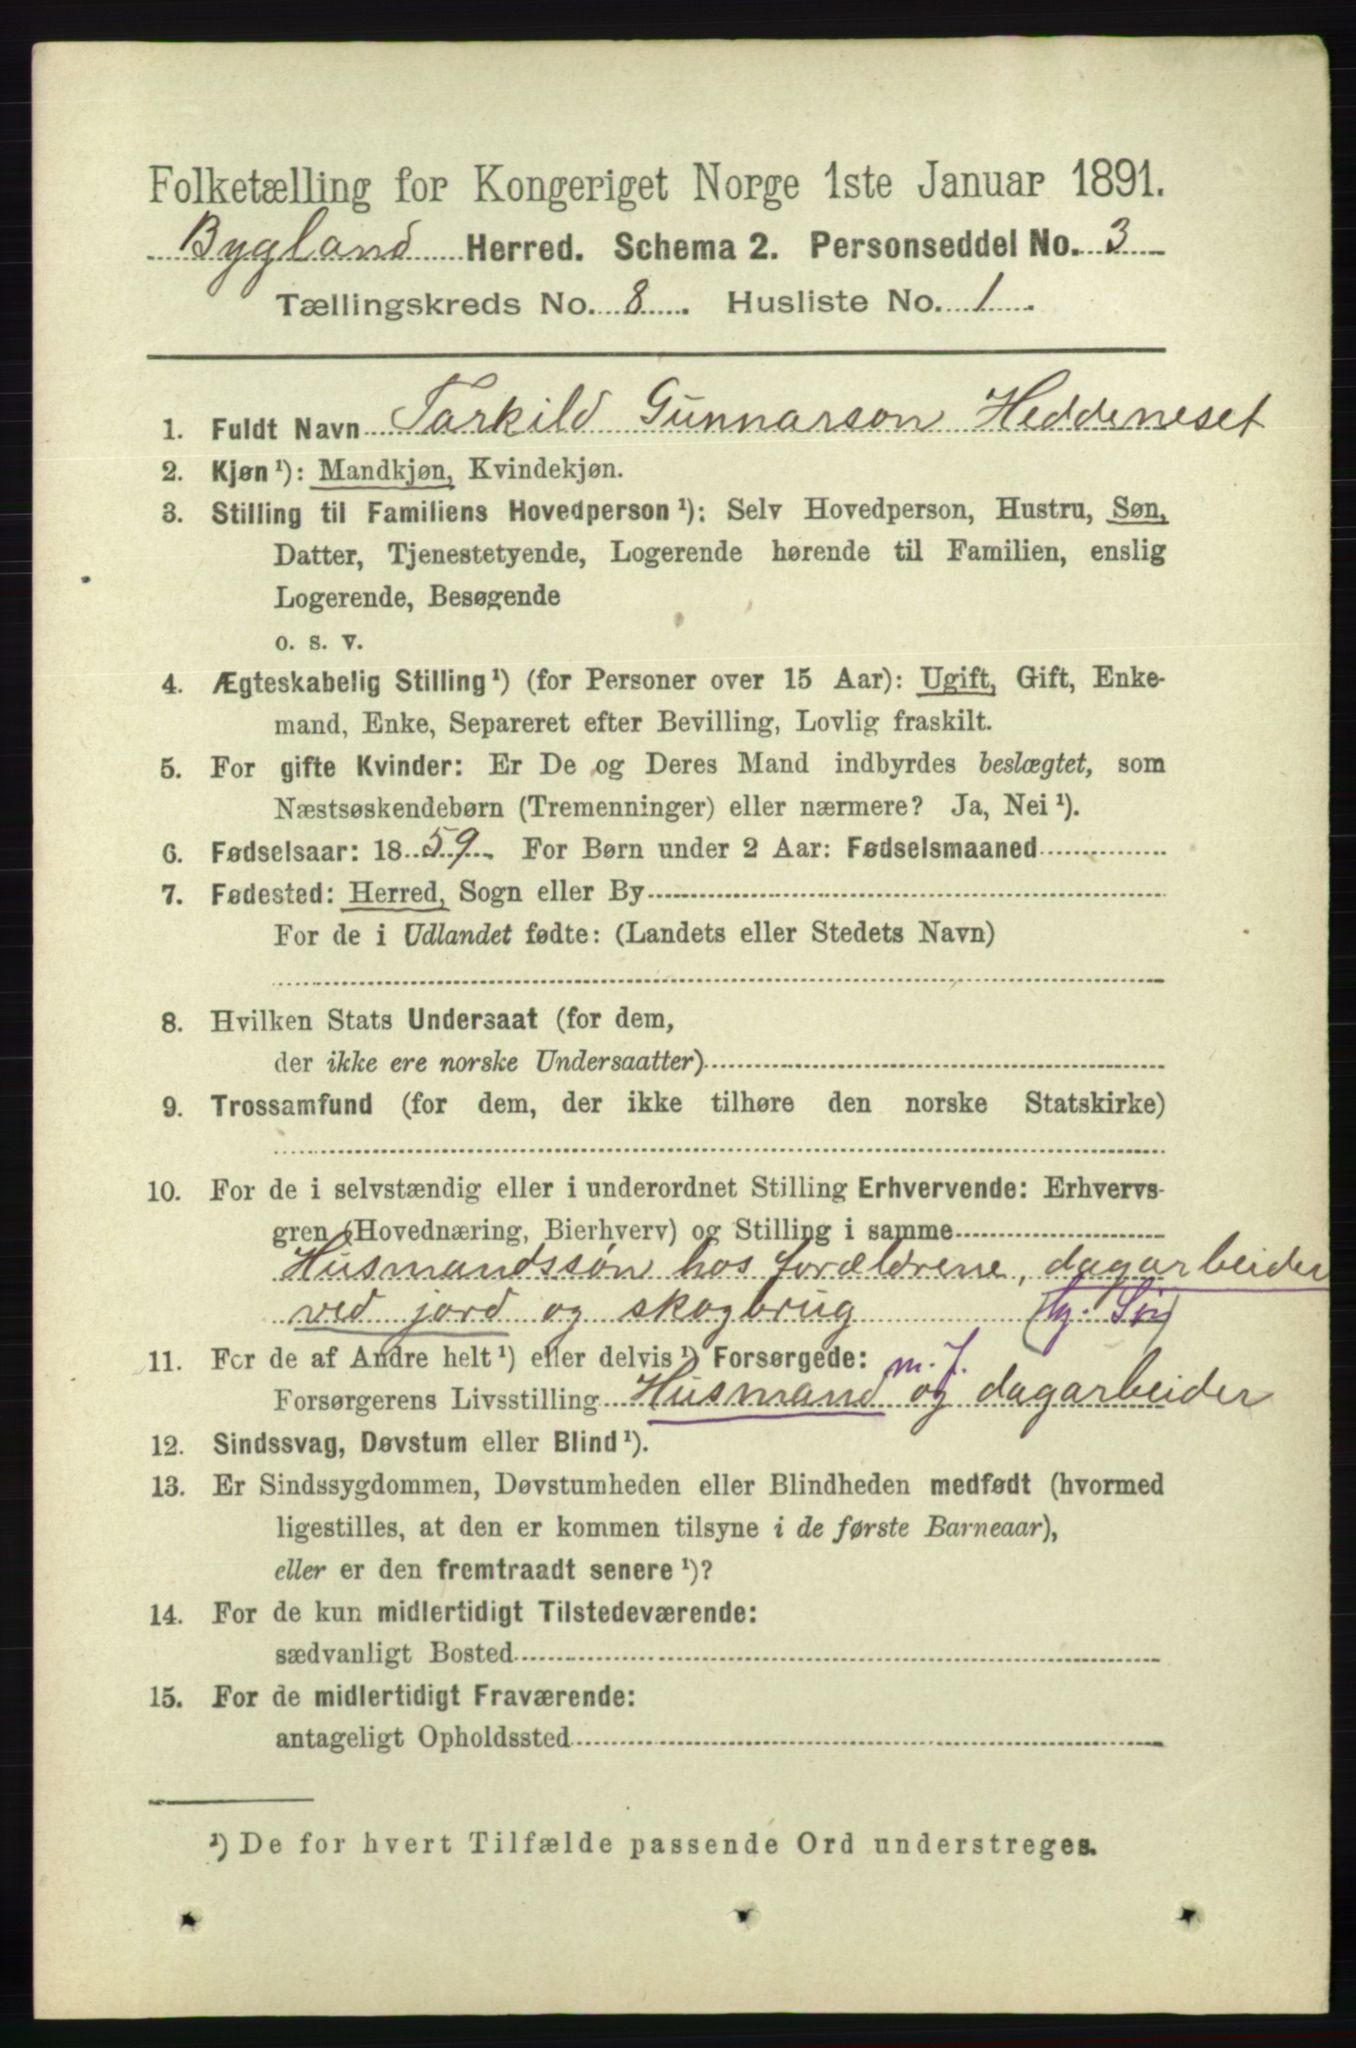 Folketælling for Kongeriget Norge 1ste Januar 1891.
Bygland Herred. Schema 2. Personseddel No. 3
Tællingskreds No. 8. Husliste No. 1.
1. Fuldt Navn Tarkild Gunnarson Heddeneset
2. Kjøn ¹): Mandkjøn, Kvindekjøn.
3. Stilling til Familiens Hovedperson ¹): Selv Hovedperson, Hustru, Søn,
Datter, Tjenestetyende, Logerende hørende til Familien, enslig
Logerende, Besøgende
o. s. v.
4. Ægteskabelig Stilling ¹) (for Personer over 15 Aar): Ugift, Gift, Enke-
mand, Enke, Separeret efter Bevilling, Lovlig fraskilt.
5. For gifte Kvinder: Er De og Deres Mand indbyrdes beslægtet, som
Næstsøskendebørn (Tremenninger) eller nærmere? Ja, Nei ¹).
6. Fødselsaar: 1859. For Børn under 2 Aar: Fødselsmaaned
7. Fødested: Herred, Sogn eller By
For de i Udlandet fødte: (Landets eller Stedets Navn)
8. Hvilken Stats Undersaat (for dem,
der ikke ere norske Undersaatter)
9. Trossamfund (for dem, der ikke tilhøre den norske Statskirke)
10. For de i selvstændig eller i underordnet Stilling Erhvervende: Erhvervs-
gren (Hovednæring, Bierhverv) og Stilling i samme
Husmandssøn hos forældrene, dagarbeider
ved jord og skogbrug (hj. Søn)
11. For de af Andre helt ¹) eller delvis ¹) Forsørgede:
m. J.
Forsørgerens Livsstilling Husmand og dagarbeider
12. Sindssvag, Døvstum eller Blind ¹).
13. Er Sindssygdommen, Døvstumheden eller Blindheden medfødt (hvormed
ligestilles, at den er kommen tilsyne i de første Barneaar),
eller er den fremtraadt senere ¹)?
14. For de kun midlertidigt Tilstedeværende:
sædvanligt Bosted
15. For de midlertidigt Fraværende:
antageligt Opholdssted
¹) De for hvert Tilfælde passende Ord understreges.